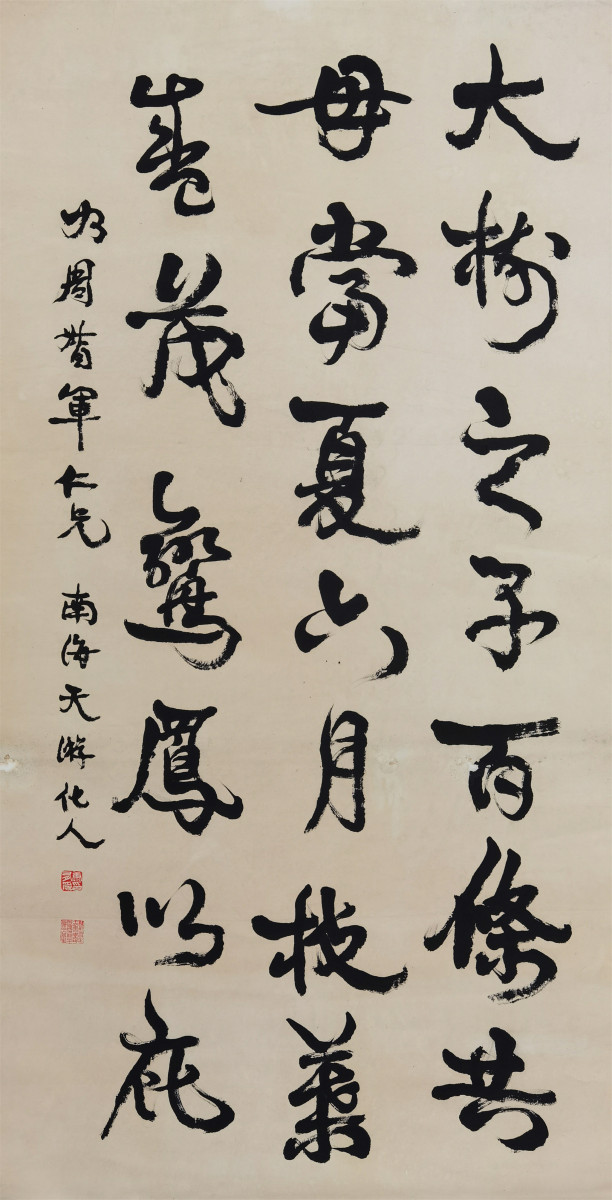 大樹之子百條共
母當夏六月枝葉
盛茂鸞鳳以庇
為周軍仁兄 南海天游化人